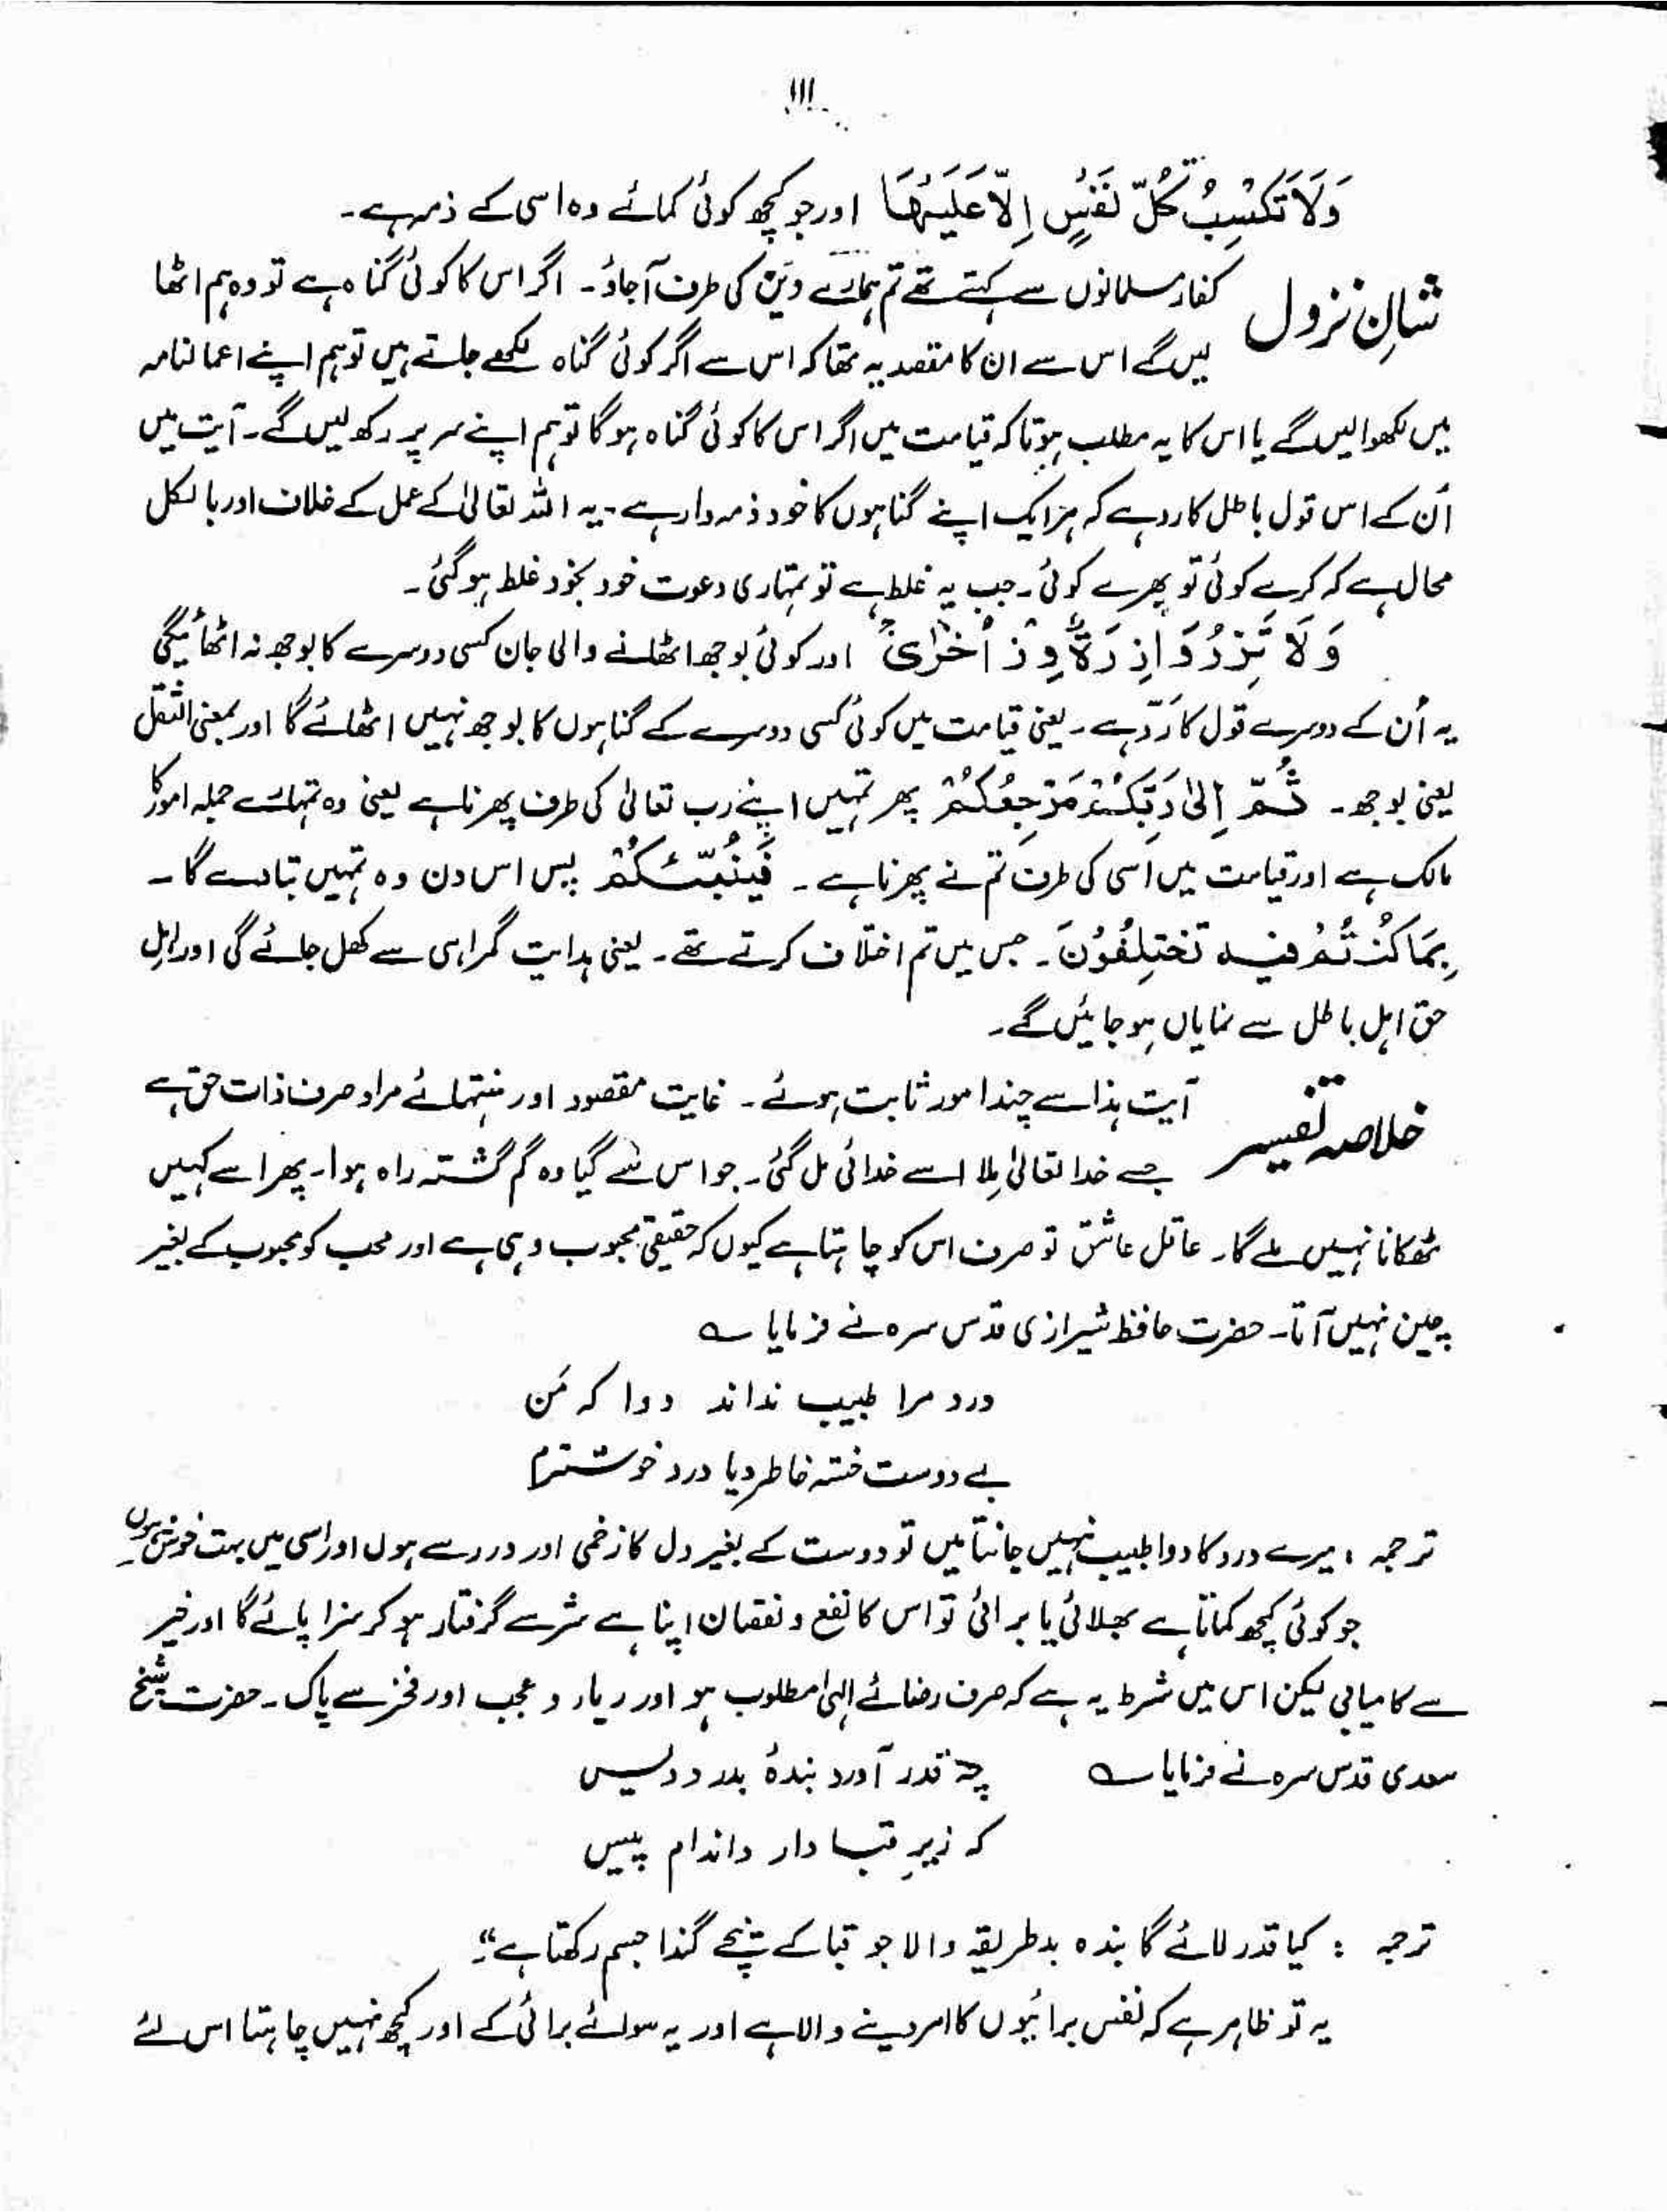 ۱۱۱
وَلَا تَكْسِبُ كُلُّ نَفْسٍ اِلَّا عَلَيْهَا اور جو کچھ کوئی کمائے وہ اسی کے ذمہ ہے۔
شانِ نزول
کفار مسلمانوں سے کہتے تھے تم ہمارے دین کی طرف آجاؤ۔ اگر اس کا کوئی گناہ ہے تو وہ ہم اٹھا
لیں گے اس سے ان کا مقصد یہ تھا کہ اس سے اگر کوئی گناہ لکھے جاتے ہیں تو ہم اپنے اعمالنامہ
میں لکھوا لیں گے یا اس کا یہ مطلب ہوتا کہ قیامت میں اگر اس کا کوئی گناہ ہوگا تو ہم اپنے سر پر رکھ لیں گے۔ آیت میں
اُن کے اس قول باطل کا رد ہے کہ ہر ایک اپنے گناہوں کا خود ذمہ دار ہے۔ یہ اللہ تعالیٰ کے عمل کے خلاف اور بالکل
محال ہے کہ کرے کوئی تو بھرے کوئی۔ جب یہ غلط ہے تو تمہاری دعوت خود بخود غلط ہوگئی۔
وَلَا تَزِرُ وَازِرَةٌ وِّزْرَ اُخْرٰى اور کوئی بوجھ اٹھانے والی جان کسی دوسرے کا بوجھ نہ اٹھائیگی
یہ اُن کے دوسرے قول کا رَدّ ہے۔ یعنی قیامت میں کوئی کسی دوسرے کے گناہوں کا بوجھ نہیں اٹھائے گا اور بمعنی الثقل
یعنی بوجھ۔ ثُمَّ اِلٰى رَبِّكُمْ مَرْجِعُكُمْ پھر تمہیں اپنے رب تعالیٰ کی طرف پھرنا ہے یعنی وہ تمہارے جملہ امور کا
مالک ہے اور قیامت میں اُسی کی طرف تم نے پھرنا ہے۔ فَيُنَبِّئُكُمْ پس اس دن وہ تمہیں بتادے گا۔
بِمَا كُنْتُمْ فِيْهِ تَخْتَلِفُوْنَ۔ جس میں تم اختلاف کرتے تھے۔ یعنی ہدایت گمراہی سے کھل جائے گی اور اہل
حق اہل باطل سے نمایاں ہوجائیں گے۔
خلاصہ تفسیر
آیت ہذا سے چند امور ثابت ہوئے۔ غایت مقصود اور منتہائے مراد صرف ذات حق ہے
جسے خدا تعالیٰ مِلا اسے خدائی مل گئی۔ جو اس سے گیا وہ گم گشتہ راہ ہوا۔ پھر اسے کہیں
ٹھکانا نہیں ملے گا۔ عاقل عاشق تو صرف اس کو چاہتا ہے کیوں کہ حقیقی محبوب وہی ہے اور محب کو محبوب کے بغیر
چین نہیں آتا۔ حضرت حافظ شیرازی قدس سرہ نے فرمایا ؎
درد مرا طبیب نداند دوا کہ مَن
بے دوست خستہ خاطر دیا درد خوشترم
ترجمہ : میرے درد کا دوا طبیب نہیں جانتا میں تو دوست کے بغیر دل کا زخمی اور درد سے ہوں اور اسی میں بہت خوش ہوں۔
جو کوئی کچھ کماتا ہے بھلائی یا برائی تو اس کا نفع و نقصان اپنا ہے شر سے گرفتار ہو کر سزا پائے گا اور خیر
سے کامیابی لیکن اس میں شرط یہ ہے کہ صرف رضائے الٰہی مطلوب ہو اور ریاء و عجب اور فخر سے پاک۔ حضرت شیخ
سعدی قدس سرہ نے فرمایا ؎ چہ قدر آورد بندۂ بد
کہ زیرِ قبا دارد اندام پیس
ترجمہ : کیا قدر لائے گا بندہ بدطریقہ والا جو قبا کے نیچے گندا جسم رکھتا ہے“۔
یہ تو ظاہر ہے کہ نفس برائیوں کا امر دینے والا ہے اور یہ سوائے برائی کے اور کچھ نہیں چاہتا اس لئے